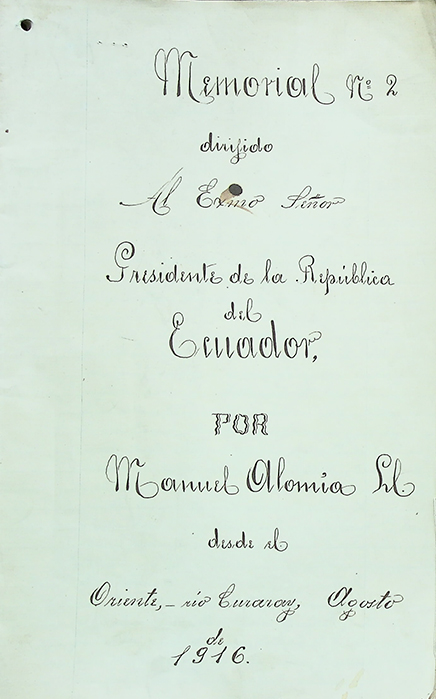 Memorial Nº 2
dirigido
Al Exmo Señor
Presidente de la República
del
Ecuador,
POR
Manuel Alomía Ll.
desde el
Oriente,– río Curaray, Agosto
de
1916.